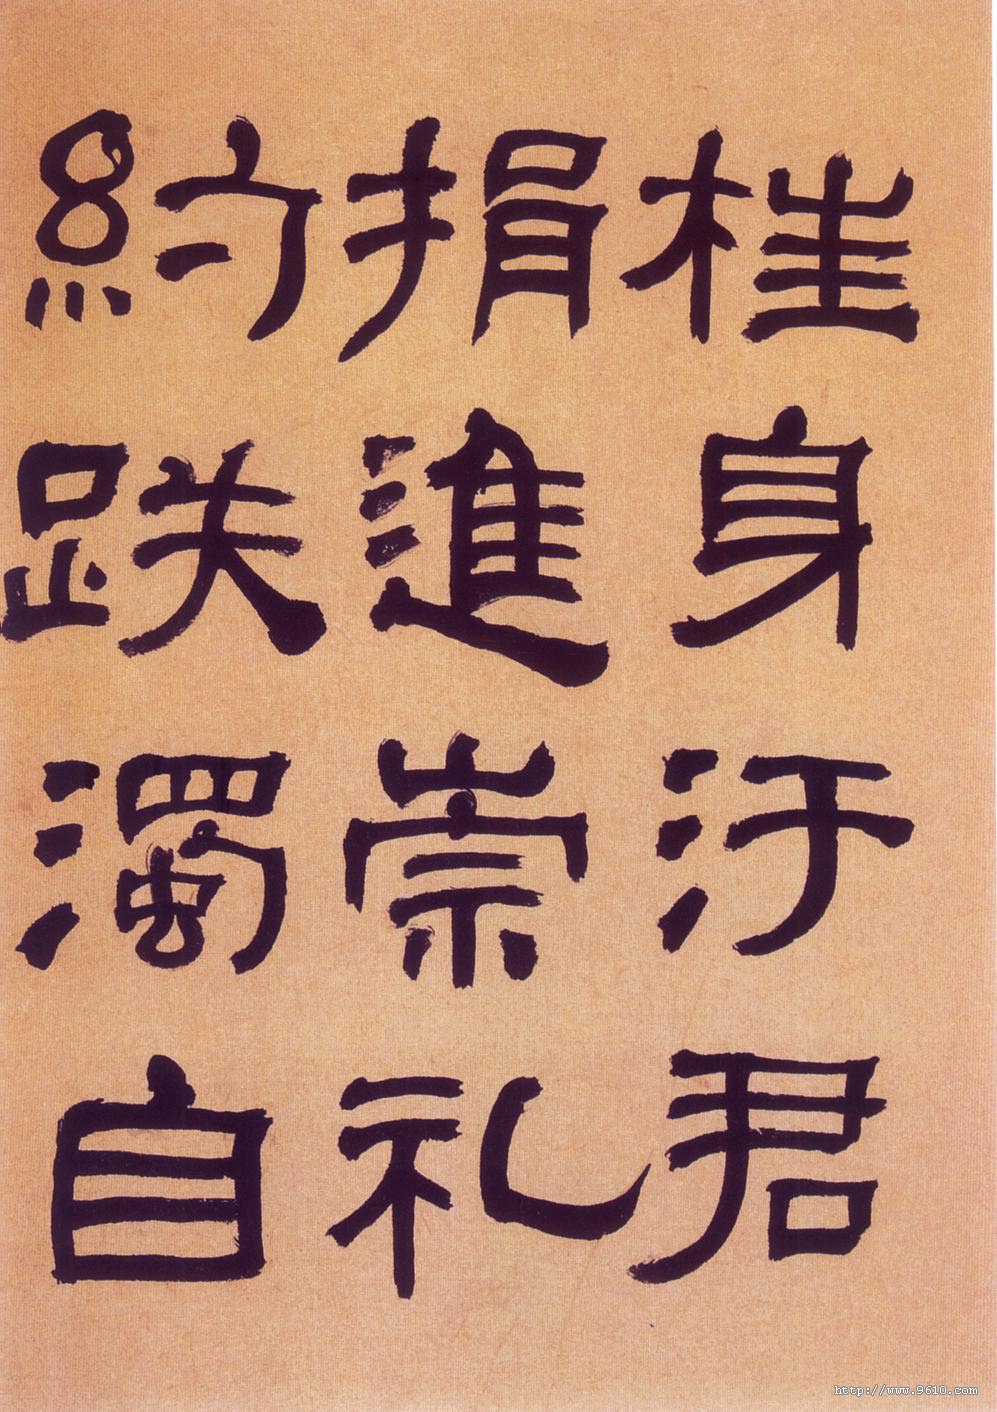 桂身汙君
捐進崇礼
約跌濁自
http://www.9610.com